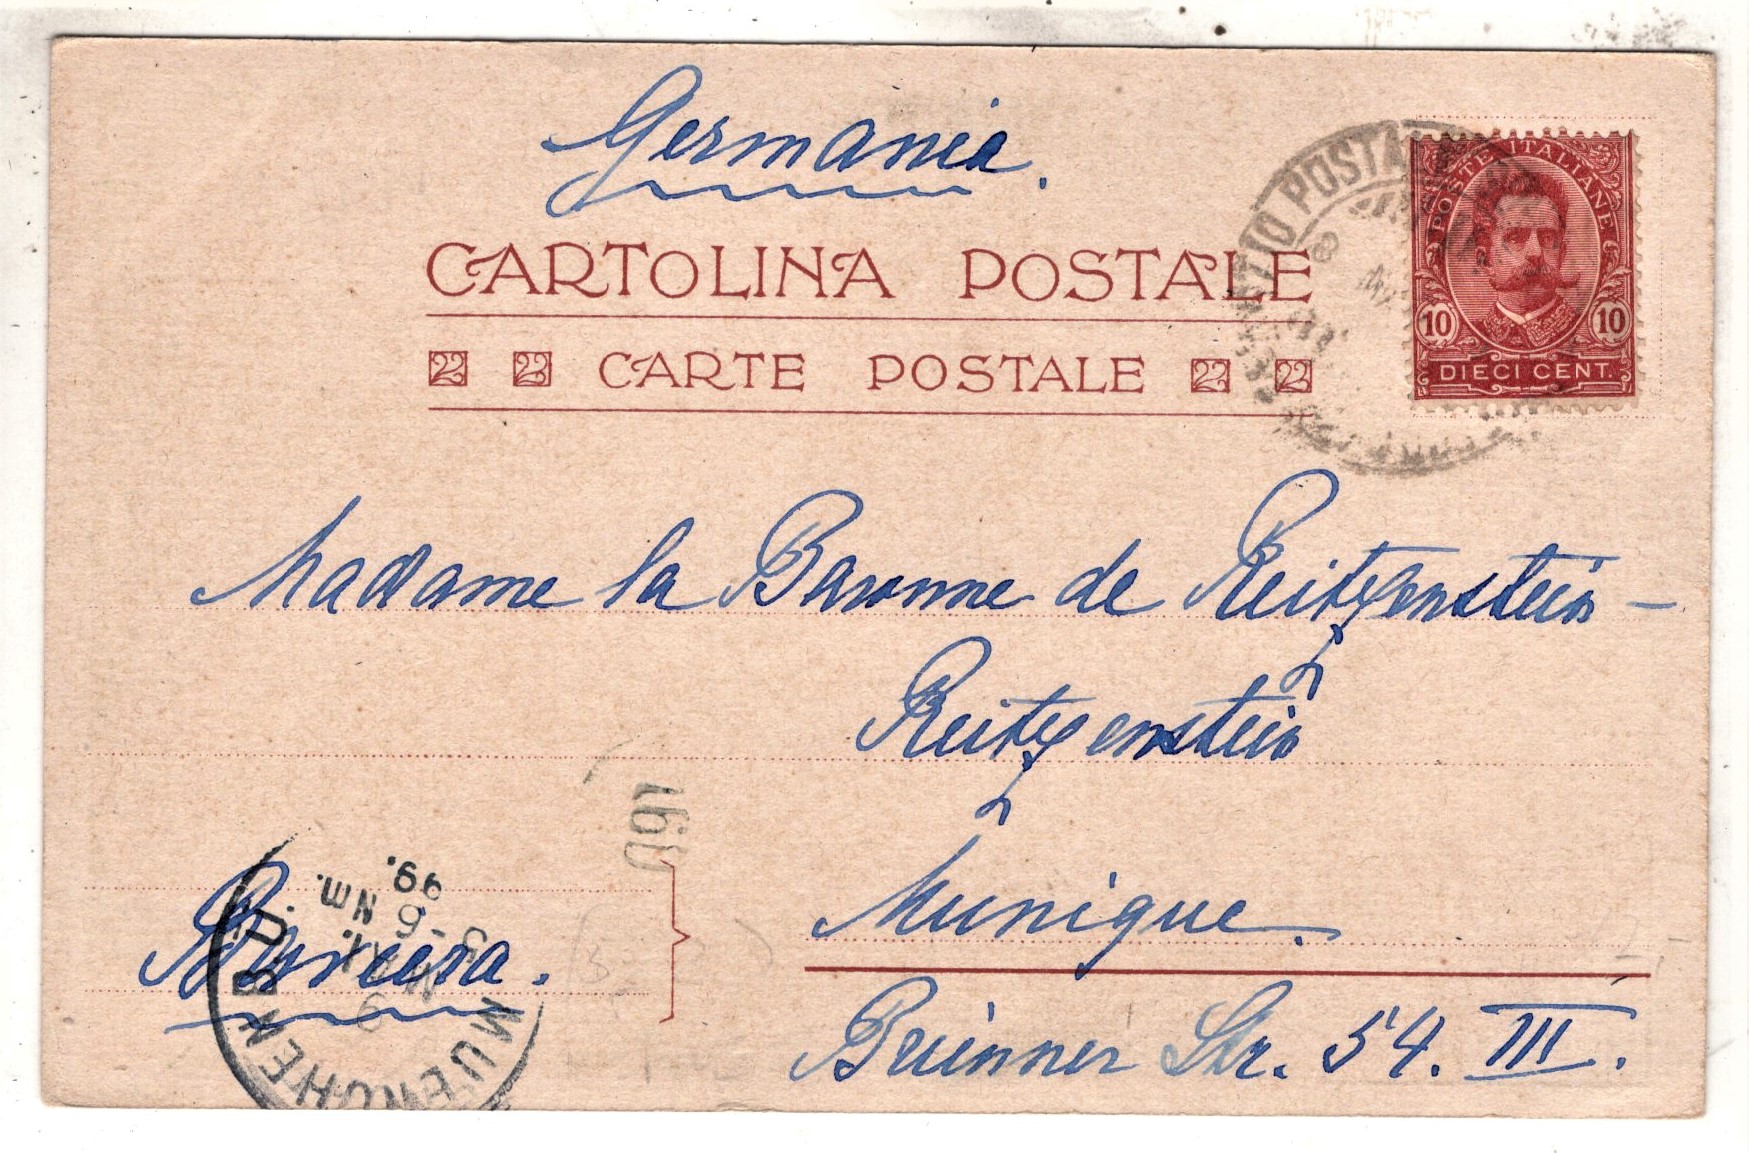 Germania.
CARTOLINA POSTALE
CARTE POSTALE
POSTE ITALIANE
10 10
DIECI CENT.
POSTA
Madame la Baronne de Reitzenstein -
Reitzenstein
Munique.
Brienner Str. 54. III.
Baviera.
MUENCHEN B.U.
5-6 Nm.
99.